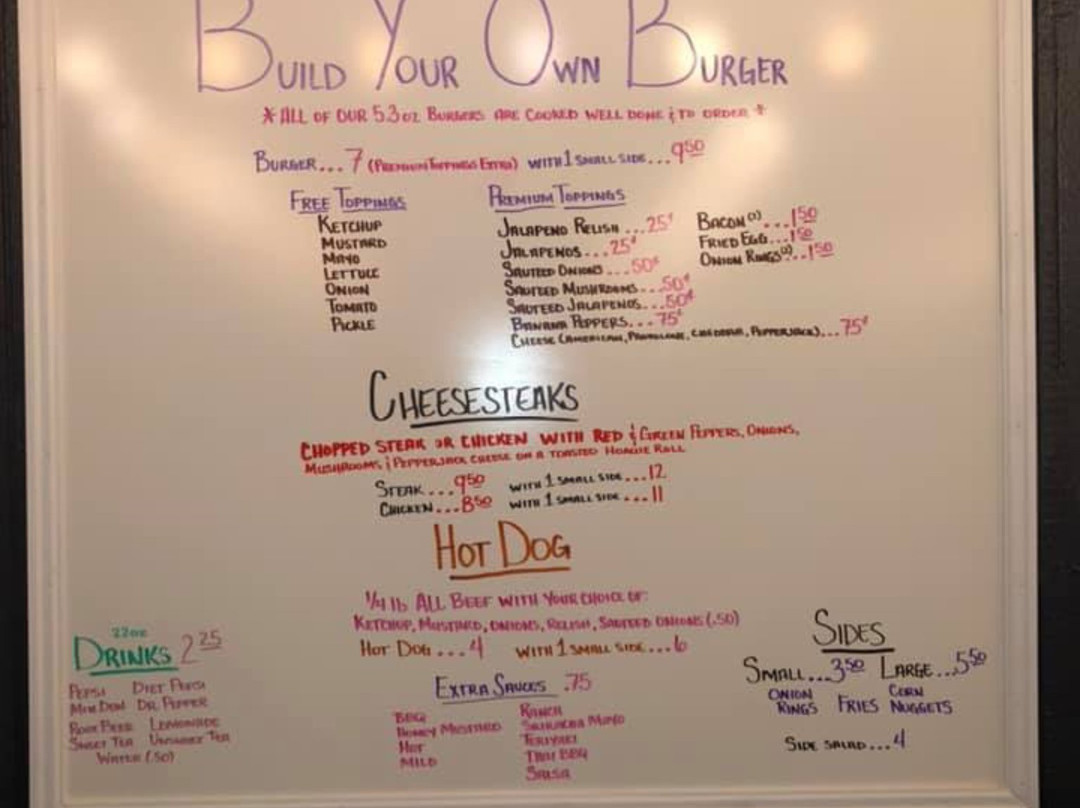 BUILD YOUR OWN BURGER
* ALL OF OUR 5.3 oz BURGERS ARE COOKED WELL DONE & TO ORDER *
BURGER... 7 (PREMIUM TOPPINGS EXTRA) WITH 1 SMALL SIDE... 9 50
FREE TOPPINGS
KETCHUP
MUSTARD
MAYO
LETTUCE
ONION
TOMATO
PICKLE
PREMIUM TOPPINGS
JALAPENO RELISH ...25¢
JALAPENOS ...25¢
SAUTEED ONIONS ...50¢
SAUTEED MUSHROOMS ...50¢
SAUTEED JALAPENOS ...50¢
BANANA PEPPERS ...75¢
CHEESE (AMERICAN, PROVOLONE, CHEDDAR, PEPPERJACK)...75¢
BACON ...1 50
FRIED EGG...1 50
ONION RINGS ...1 50
CHEESESTEAKS
CHOPPED STEAK OR CHICKEN WITH RED & GREEN PEPPERS, ONIONS,
MUSHROOMS & PEPPERJACK CHEESE ON A TOASTED HOAGIE ROLL
STEAK...9 50 WITH 1 SMALL SIDE...12
CHICKEN...8 50 WITH 1 SMALL SIDE...11
HOT DOG
1/4 lb ALL BEEF WITH YOUR CHOICE OF:
KETCHUP, MUSTARD, ONIONS, RELISH, SAUTEED ONIONS (.50)
HOT DOG ...4 WITH 1 SMALL SIDE...6
EXTRA SAUCES .75
BBQ
HONEY MUSTARD
HOT
MILD
RANCH
SRIRACHA MAYO
TERIYAKI
THAI BBQ
SALSA
22oz
DRINKS 2 25
PEPSI DIET PEPSI
MTN DEW DR. PEPPER
ROOT BEER LEMONADE
SWEET TEA UNSWEET TEA
WATER (.50)
SIDES
SMALL...3 50 LARGE...5 50
ONION RINGS FRIES CORN NUGGETS
SIDE SALAD...4